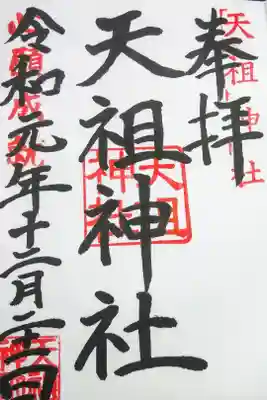 天祖神社
奉拝
天祖神社
天祖神社
心願成就
令和元年十二月二十一日